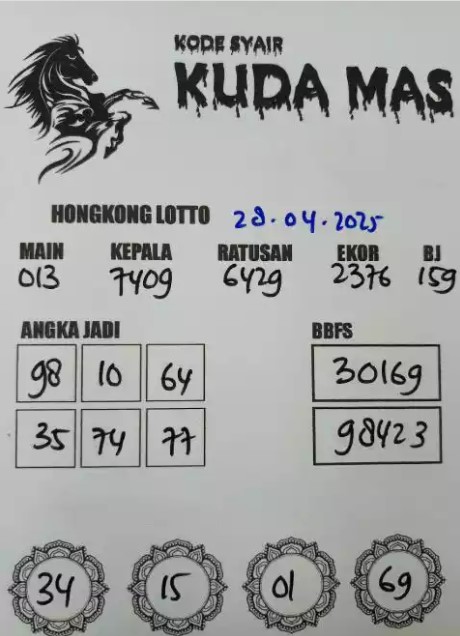 KODE SYAIR
KUDA MAS
HONGKONG LOTTO 28.04.2025
MAIN KEPALA RATUSAN EKOR BJ
013 7409 6429 2376 159
ANGKA JADI BBFS
98 10 64 30169
35 74 77 98423
34 15 01 69